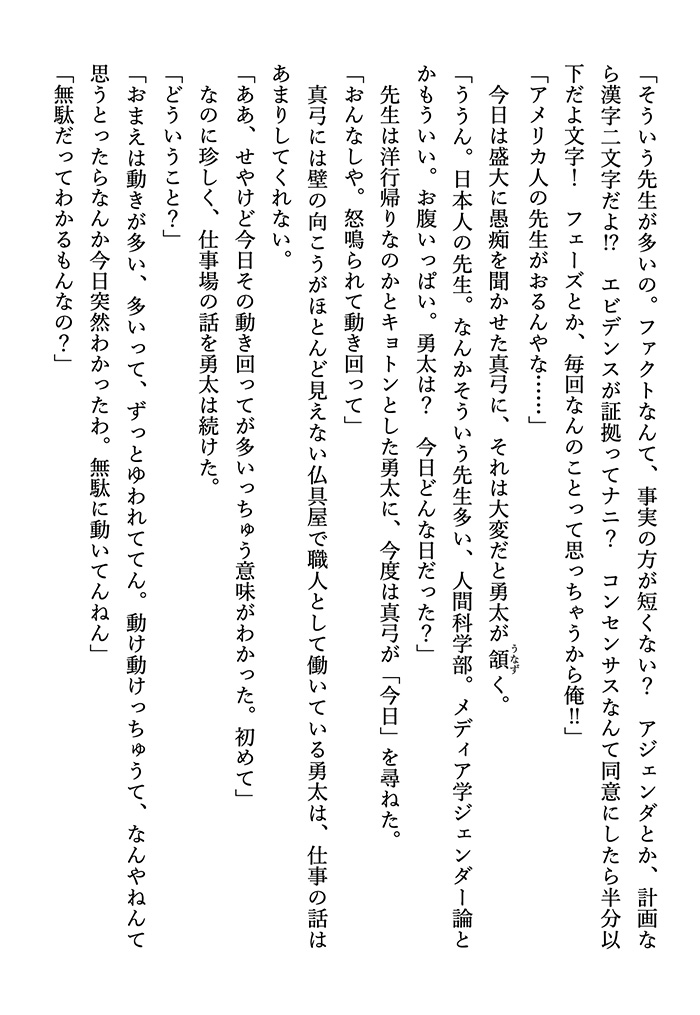 「そういう先生が多いの。ファクトなんて、事実の方が短くない？　アジェンダとか、計画な
ら漢字二文字だよ!?　エビデンスが証拠ってナニ？　コンセンサスなんて同意にしたら半分以
下だよ文字！　フェーズとか、毎回なんのことって思っちゃうから俺!!」
「アメリカ人の先生がおるんやな……」
　今日は盛大に愚痴を聞かせた真弓に、それは大変だと勇太が頷うなずく。
「ううん。日本人の先生。なんかそういう先生多い、人間科学部。メディア学ジェンダー論と
かもういい。お腹いっぱい。勇太は？　今日どんな日だった？」
　先生は洋行帰りなのかとキョトンとした勇太に、今度は真弓が「今日」を尋ねた。
「おんなしや。怒鳴られて動き回って」
　真弓には壁の向こうがほとんど見えない仏具屋で職人として働いている勇太は、仕事の話は
あまりしてくれない。
「ああ、せやけど今日その動き回ってが多いっちゅう意味がわかった。初めて」
　なのに珍しく、仕事場の話を勇太は続けた。
「どういうこと？」
「おまえは動きが多い、多いって、ずっとゆわれててん。動け動けっちゅうて、なんやねんて
思うとったらなんか今日突然わかったわ。無駄に動いてんねん」
「無駄だってわかるもんなの？」